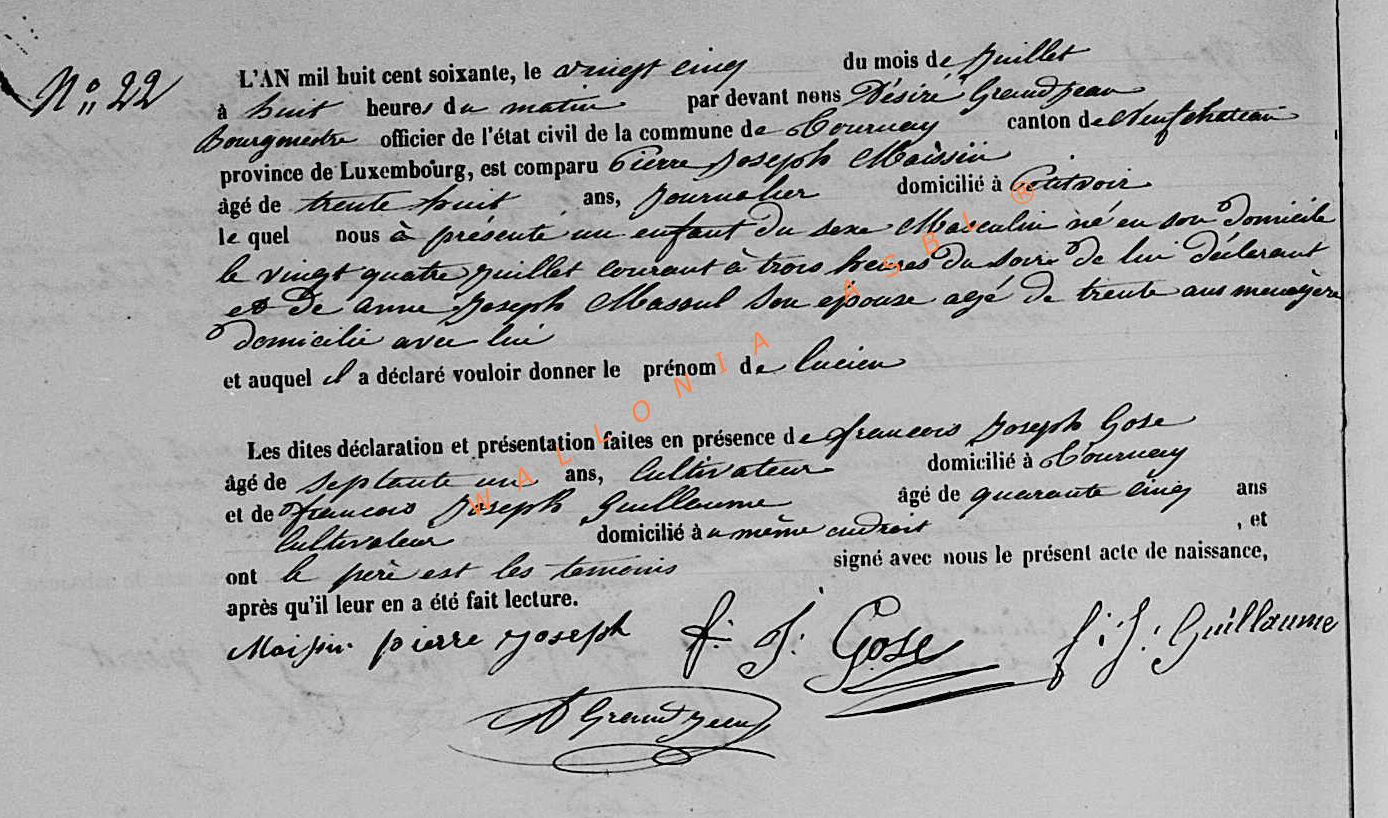 N° 22
L'AN mil huit cent soixante, le vingt cinq du mois de Juillet
à huit heures du matin par devant nous Désiré Grandjean
Bourgmestre officier de l'état civil de la commune de Tournay canton de Neufchateau
province de Luxembourg, est comparu Pierre Joseph Maissin
âgé de trente huit ans, Journalier domicilié à Petitvoir
le quel nous à présenté un enfant du sexe Masculin né en son domicile
le vingt quatre Juillet courant à trois heures du soir de lui déclarant
et de anne Joseph Masoul son épouse agé de trente ans menagère
domicilié avec lui
et auquel il a déclaré vouloir donner le prénom de Lucien
Les dites déclaration et présentation faites en présence de francois Joseph Gose
âgé de septante un ans, Cultivateur domicilié à Tournay
et de francois Joseph Guillaume âgé de quarante cinq ans
Cultivateur domicilié à u même endroit , et
ont le père est les temoins signé avec nous le présent acte de naissance,
après qu'il leur en a été fait lecture.
Maissin pierre Joseph f. J. Gose f. J. Guillaume
D Grandjean
WALLONIA ASBL ®